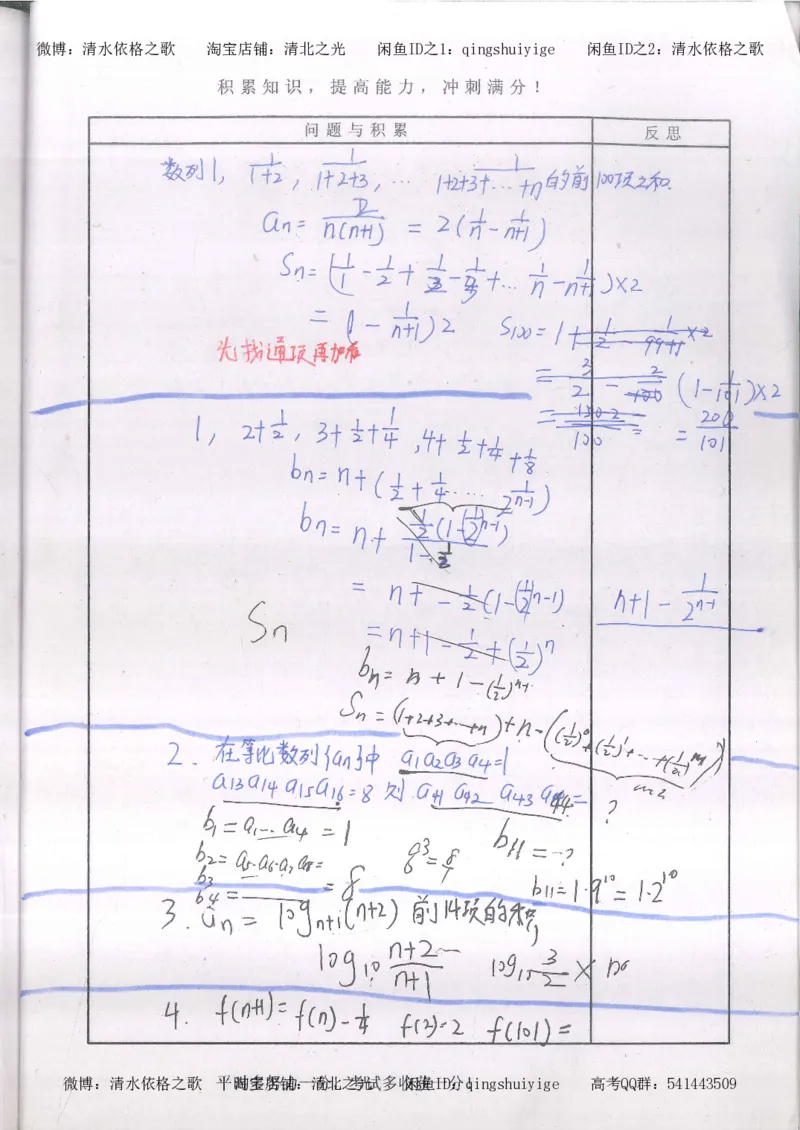 微博：清水依格之歌 淘宝店铺：清北之光 闲鱼ID之1：qingshuiyige 闲鱼ID之2：清水依格之歌
积累知识，提高能力，冲刺满分！
问题与积累 反思
数列1, 1/(1+2), 1/(1+2+3), … 1/(1+2+3+…+n) 的前100项之和.
an = 2/(n(n+1)) = 2(1/n - 1/(n+1))
Sn = (1/1 - 1/2 + 1/2 - 1/3 + … 1/n - 1/(n+1))×2
= (1 - 1/(n+1))2 S100 =
先找通项再加和
(1 - 1/101)×2
= 200/101
1, 2+1/2, 3+1/2+1/4, 4+1/2+1/4+1/8
bn = n+(1/2+1/4 …… 1/2^(n-1))
bn = n+ (1/2(1-(1/2)^(n-1)))/(1-1/2)
= n+ - 1/2(1-(1/2)^(n-1)) n+1 - 1/2^(n-1)
= n+1 - 1/2 + (1/2)^n
Sn
bn = n+1-(1/2)^(n-1)
Sn = (1+2+3+…+n)+n-((1/2)^0+(1/2)^1+…+(1/2)^(n-1))
2. 在等比数列{an}中 a1a2a3a4=1
a13a14a15a16=8 则 a41 a42 a43 a44= ?
b1 = a1…a4 = 1
b2 = a5·a6·a7·a8=
b3
b4 = = 8
q³ = 8/1
b11 = ?
b11 = 1·q^10 = 1·2^10
3. an = log_(n+1)(n+2) 前14项的积
log10 (n+2)/(n+1) log10 3/2 × no
4. f(n+1) = f(n) - 1/4 f(2)=2 f(101)=
微博：清水依格之歌 淘宝店铺：清北之光 闲鱼ID：qingshuiyige 高考QQ群：541443509